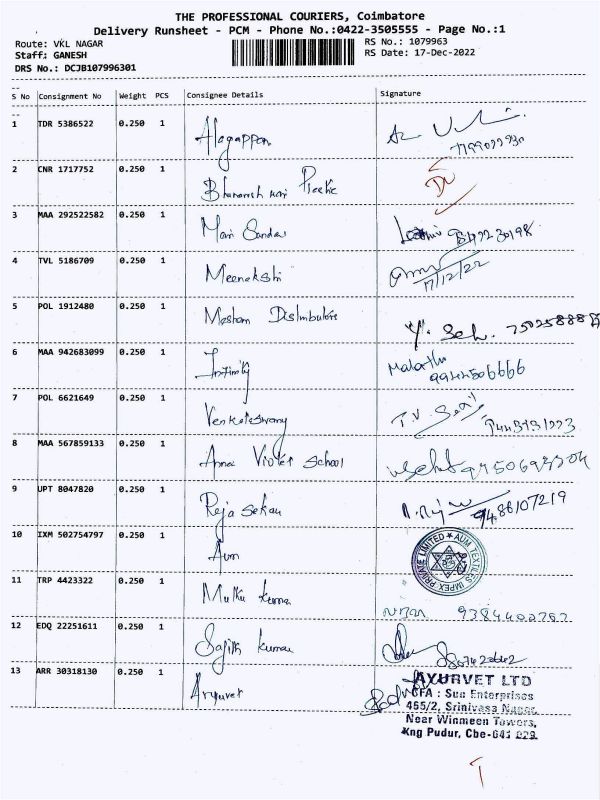 THE PROFESSIONAL COURIERS, Coimbatore
Delivery Runsheet - PCM - Phone No.:0422-3505555 - Page No.:1
Route: VKL NAGAR
RS No.: 1079963
Staff: GANESH
RS Date: 17-Dec-2022
DRS No.: DCJB107996301
S No Consignment No Weight PCS Consignee Details Signature
1 TDR 5386522 0.250 1 Alagappan
2 CNR 1717752 0.250 1
3 MAA 292522582 0.250 1 Mari Sundar
4 TVL 5186709 0.250 1 Meenakshi
17/12/22
5 POL 1912480 0.250 1 Distributors
6 MAA 942683099 0.250 1 Malathi
9944506666
7 POL 6621649 0.250 1 T.V
8 MAA 567859133 0.250 1 Anna Violet School
9 UPT 8047820 0.250 1 Raja Sekar
9486107219
10 IXM 502754797 0.250 1 Aum
AUM TEXTILES IMPEX PRIVATE LIMITED
11 TRP 4423322 0.250 1 Muthu Kumar
9384402762
12 EDQ 22251611 0.250 1 Sajith Kumar
13 ARR 30318130 0.250 1 Aryurvet
AYURVET LTD
CFA : Sun Enterprises
465/2, Srinivasa Nagar,
Near Winmeen Towers,
Kng Pudur, Cbe-641 029.